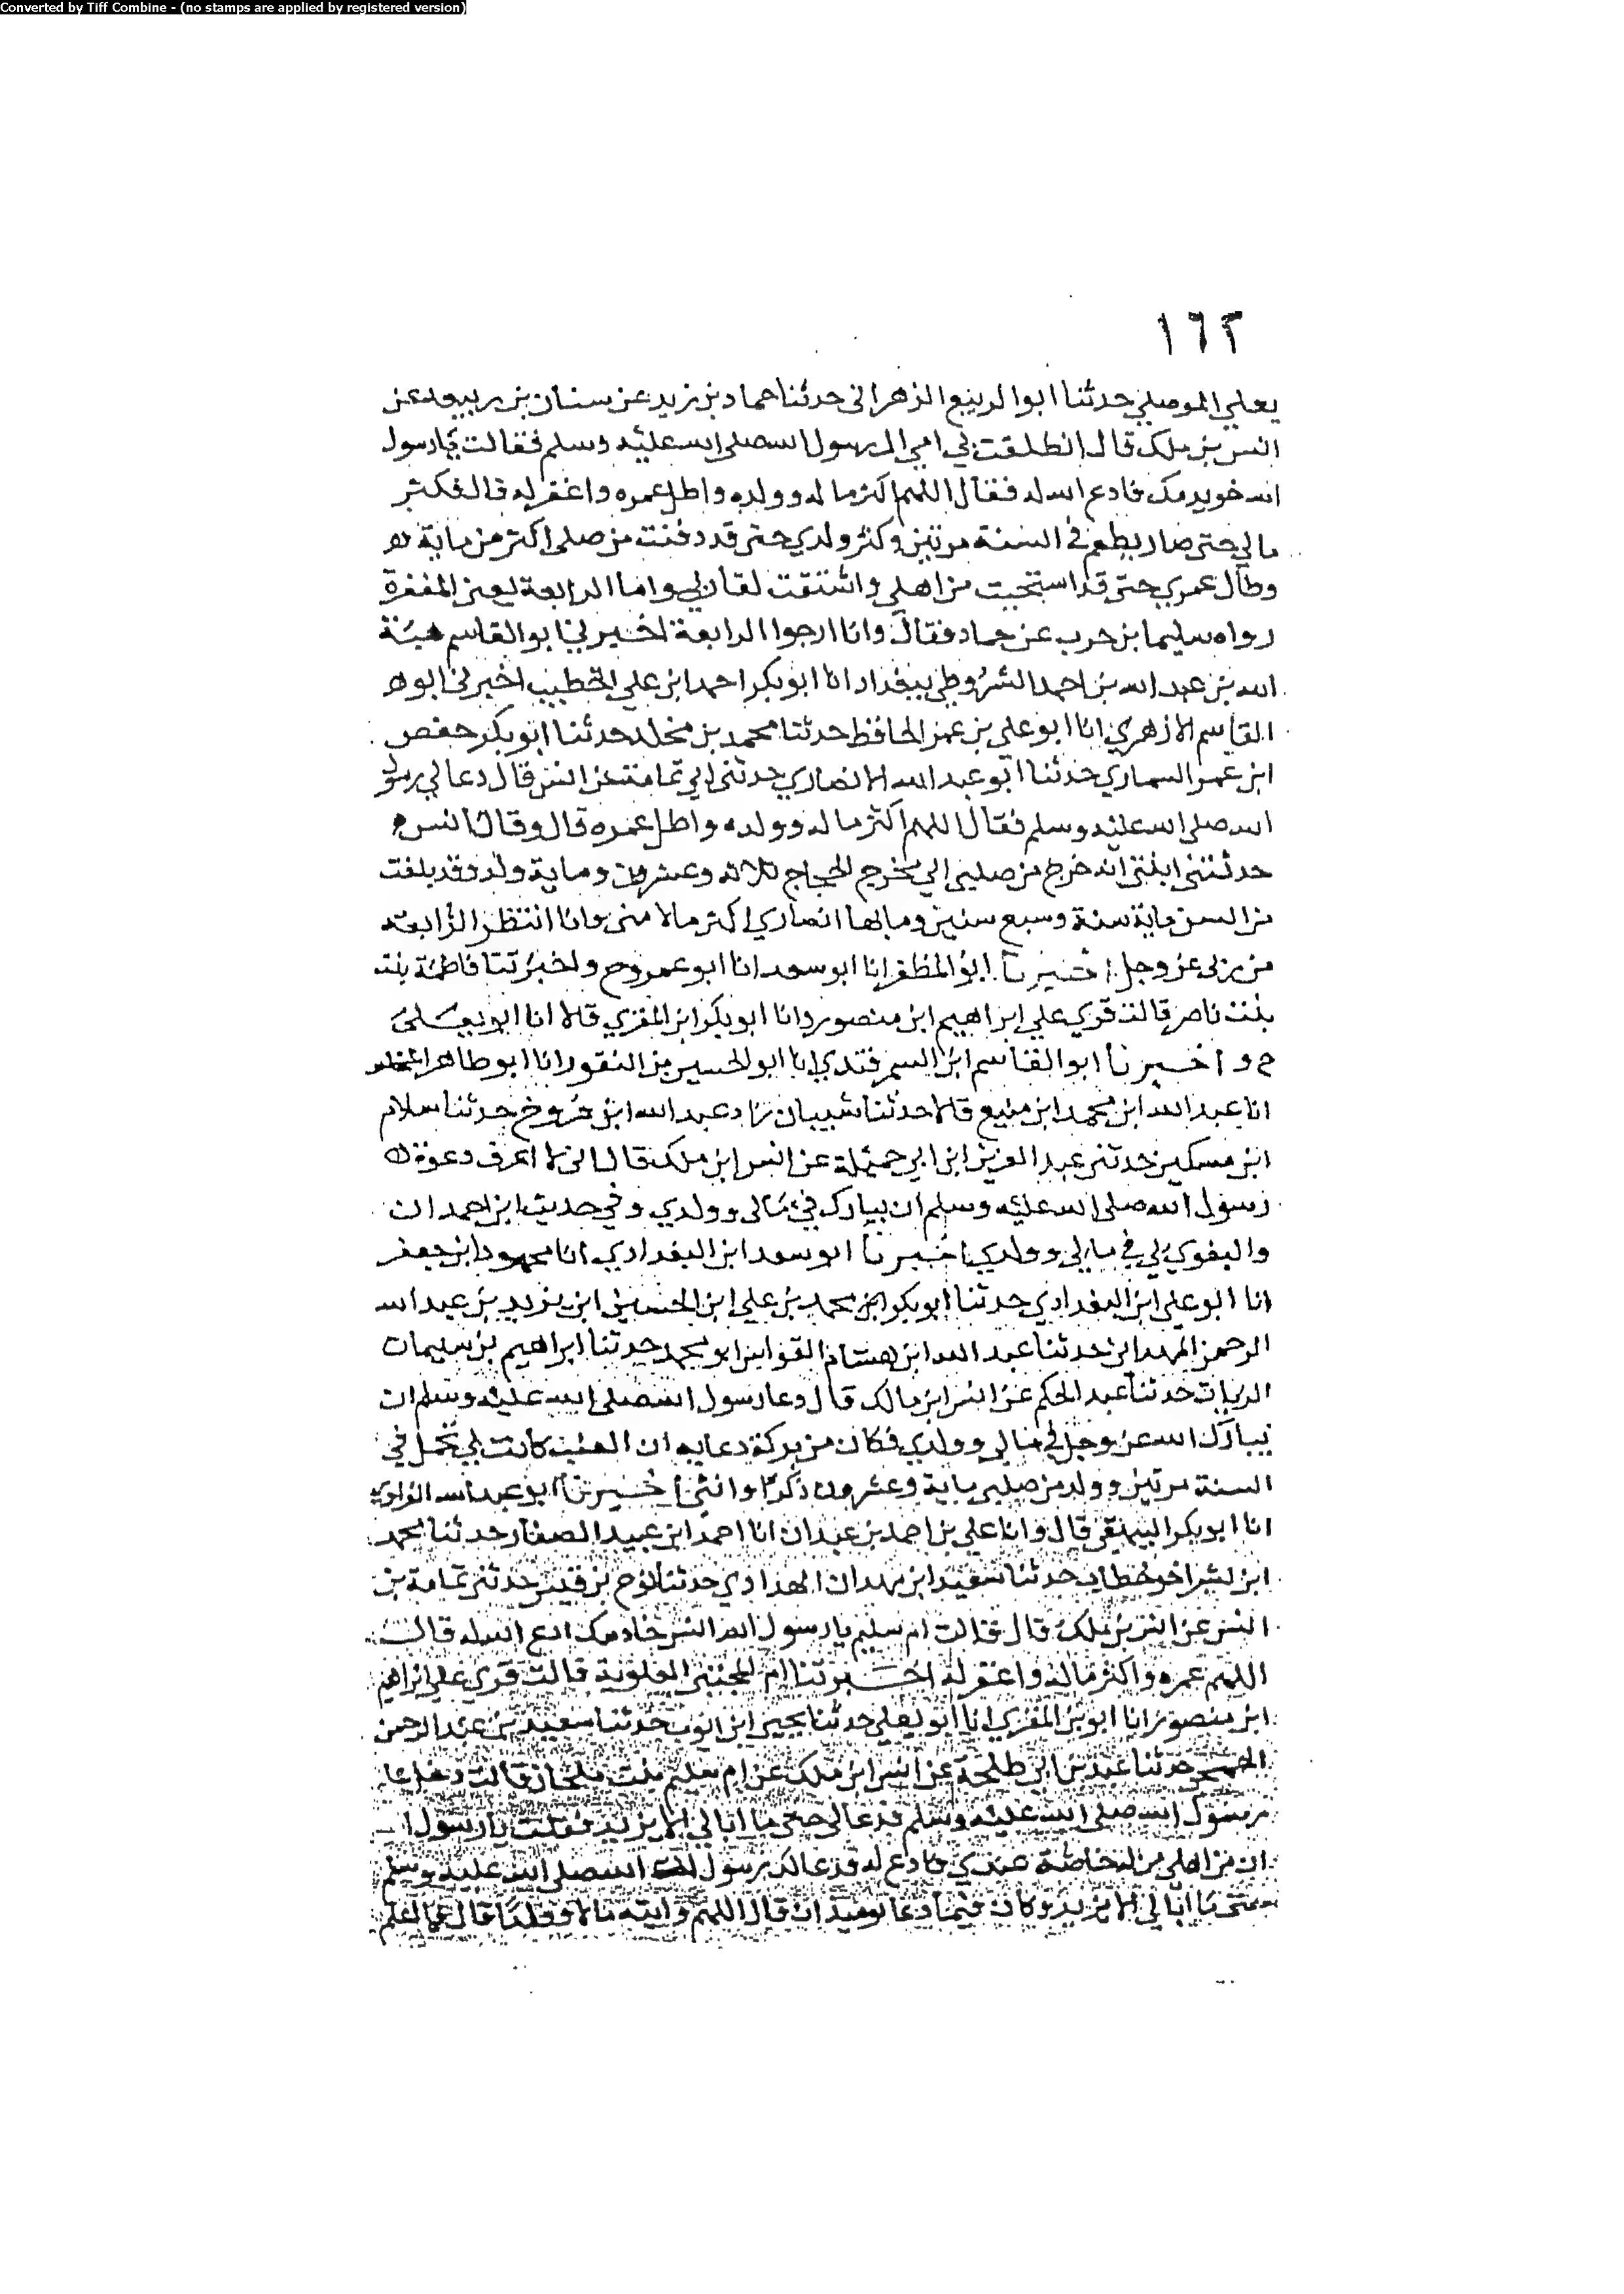 Converted by Tiff Combine - (no stamps are applied by registered version)
١٦٢
يعلي الموصلي حدثنا ابوا لربيع الزهراني حدثنا حماد بن زيد عن سنان بن ربيعه عن
انس بن ملك قال انطلقت بي امي الي رسول الله صلي الله عليه وسلم فقالت يارسول
الله خويدمك فادع الله له فقال اللهم اكثر ماله وولده واطل عمره واغفر له قال فكثر
مالي حتى صار يطعم في السنة مرتين وكثر ولدي حتى قد دفنت من صلبي اكثر من ماية
وطال عمري حتى قد استحيت من اهلي واشتقت لقا ربي واما الرابعة يعني المغفرة
رواه سليما بن حرب عن حماد فقال وانا ارجوا الرابعة اخبرني ابو القاسم هبة
الله بن عبد الله بن احمد الشروطي ببغداد انا ابو بكر احمد ابن علي الخطيب اخبرني ابو
القاسم الازهري انا ابو علي بن عمر الحافظ حدثنا محمد بن مخلد حدثنا ابو بكر حفص
ابن عمر السماري حدثنا ابو عبد الله الانصاري حدثني ابي ثمامة عن انس قال دعا لي رسول
الله صلى الله عليه وسلم فقال اللهم اكثر ماله وولده واطل عمره قال وقال انس
حدثتني ابنتي انه خرج من صلبي الي مخرج الحجاج ثلاثه وعشرون وماية ولد وقد بلغت
من السن ماية سنة وسبع سنين وما بها انصاري اكثر مالا مني وانا انتظر الرابعه
من ربي عز وجل اخبرنا ابو المظفر انا ابو سعد انا ابو عمرو ح واخبرتنا فاطمة بنت
بنت ناصر قالت قري علي ابراهيم ابن منصور انا ابو بكر ابن المقري قالا انا ابو يعلي
ح و اخبرنا ابو القاسم ابن السمرقندي انا ابو الحسين بن النقور انا ابو طاهر المخلص
انا عبد الله ابن محمد ابن منيع قالا حدثنا شيبان زاد عبد الله ابن فروخ حدثنا سلام
ابن مسكين حدثني عبد العزيز ابن ابي جميلة عن انس ابن ملك قال اني لا اعرف دعوة
رسول الله صلى الله عليه وسلم ان يبارك في مالي وولدي وفي حديث ابن احمدان
والبغوي لي في مالي وولدي اخبرنا ابو سعد ابن البغدادي انا محمود ابن جعفر
انا ابو علي ابن البغدادي حدثنا ابو بكر ابن محمد بن علي ابن الحسين ابن يزيد بن عبد الله
الرحمن حدثنا عبد الله ابن هشام القواس ابو محمد حدثنا ابراهيم بن سليمان
الزيات حدثنا عبد الحكم عن انس ابن مالك قال دعا رسول الله صلى الله عليه وسلم ان
يبارك الله عز وجل في مالي وولدي فكان من بركة دعايه ان كانت لي تحمل في
السنة مرتين وولد من صلبي ماية وعشرون ذكرا وانثي اخبرنا ابو عبد الله الفراوي
انا ابو بكر البيهقي قال وانا علي بن احمد بن عبدان انا احمد ابن عبيد الصفار حدثنا محمد
ابن بشر اخو خطاب حدثنا سعيد ابن مهدان الهدادي حدثنا نوح بن قيس حدثني ثمامة بن
انس عن انس بن ملك قال قالت ام سليم يا رسول الله انس خادمك ادع الله له قال
اللهم عمره واكثر ماله واغفر له اخبرتنا ام المجتبى العلوية قالت قري علي ابراهيم
ابن منصور انا ابو بكر المقري انا ابو يعلي حدثنا يحيى ابن ايوب حدثنا سعيد بن عبد الرحمن
الجمحي حدثنا عبد بن ابي طلحة عن انس ابن ملك عن ام سليم بنت ملحان قالت دعا
رسول الله صلى الله عليه وسلم فدعا لي حتى ما ابالي الا يزيد فقلت يا رسول
ان من اهلي من له خاصة عندي فادع له فدعا له رسول الله صلى الله عليه وسلم
حتى ما ابالي الا يزيد وكان فيما دعا يوميذ ان قال اللهم واته مالا وولدا قال فما اعلم